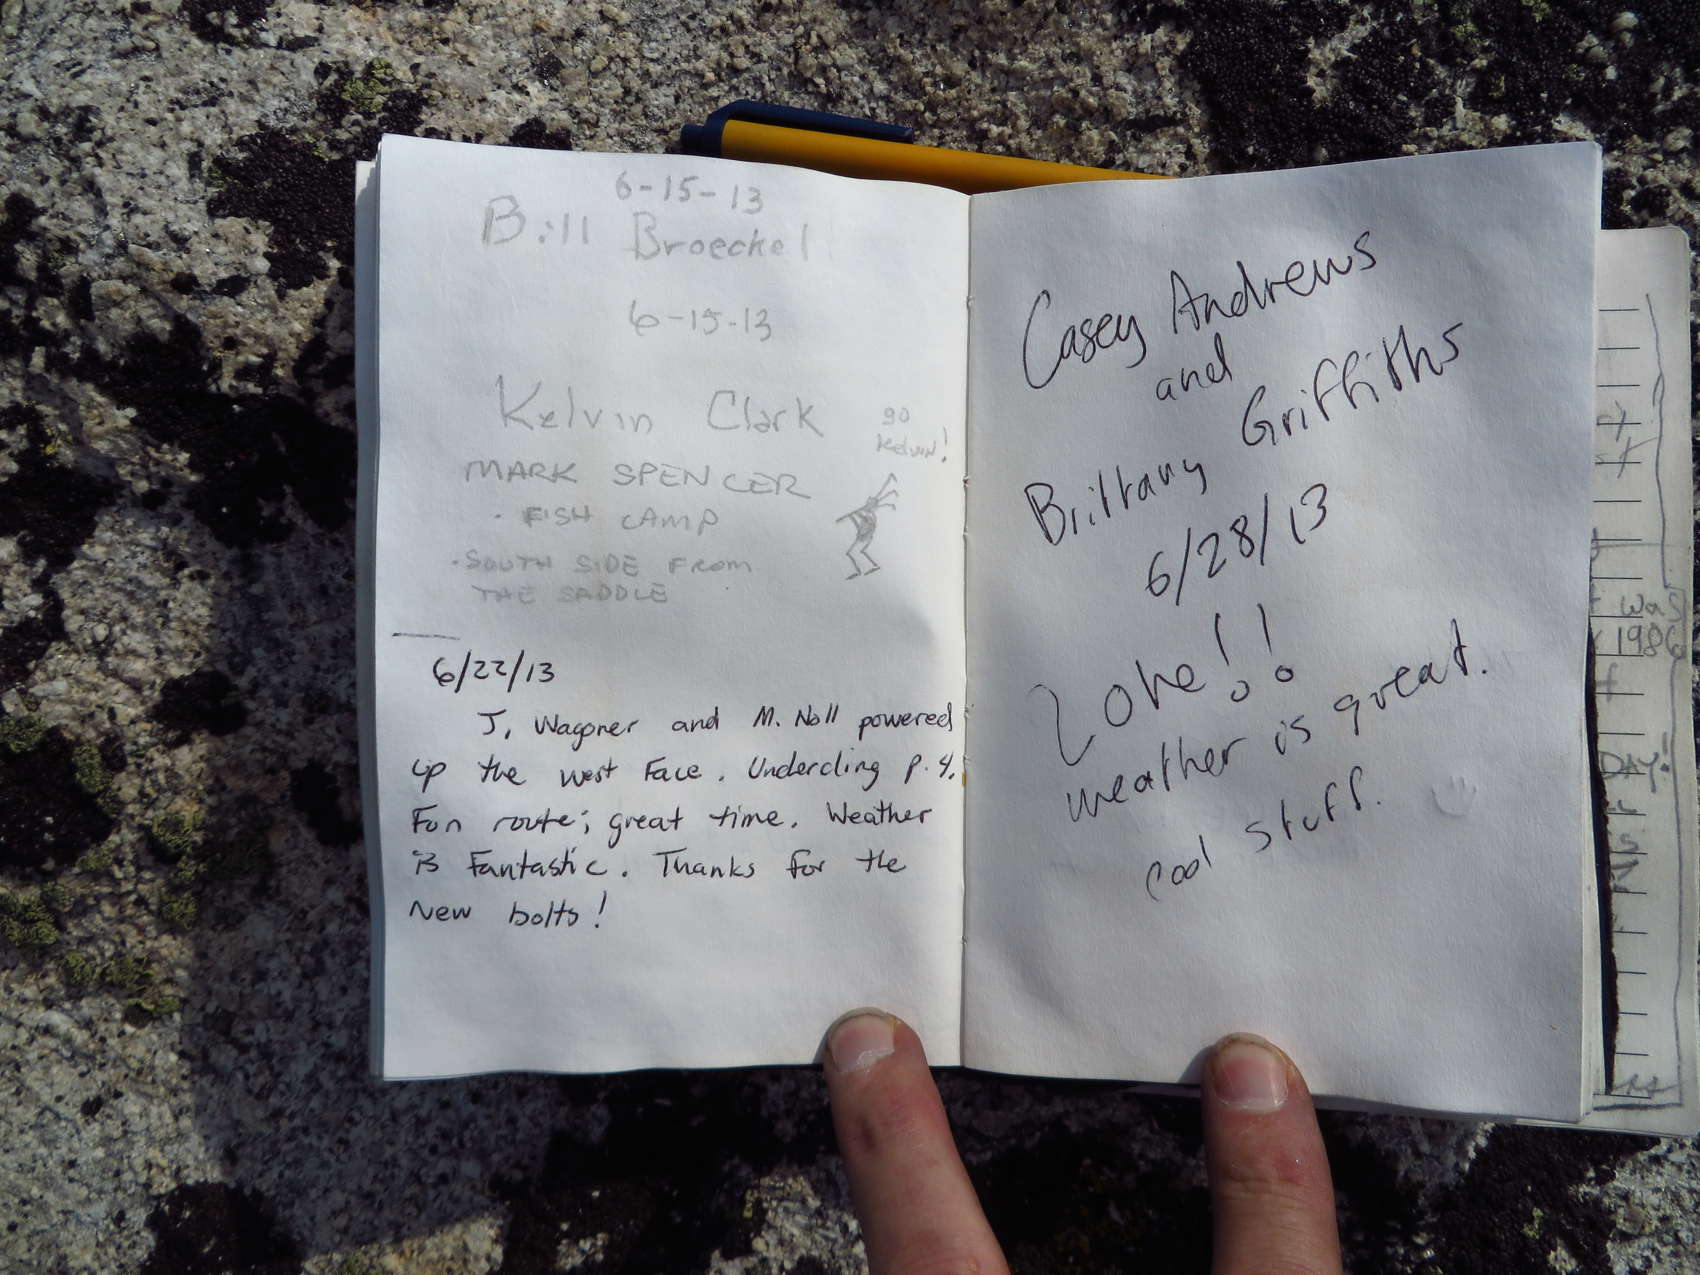 6-15-13
Bill Broeckel
6-15-13
Kelvin Clark
go
Kelvin!
MARK SPENCER
· FISH CAMP
· SOUTH SIDE FROM
THE SADDLE
6/22/13
J. Wagoner and M. Noll powered
up the west Face. Undercling p. 4.
Fun route; great time. Weather
is Fantastic. Thanks for the
New bolts!
Casey Andrews
and
Brittany Griffiths
6/28/13
weather is great.
cool stuff.
was
1986
DAY!